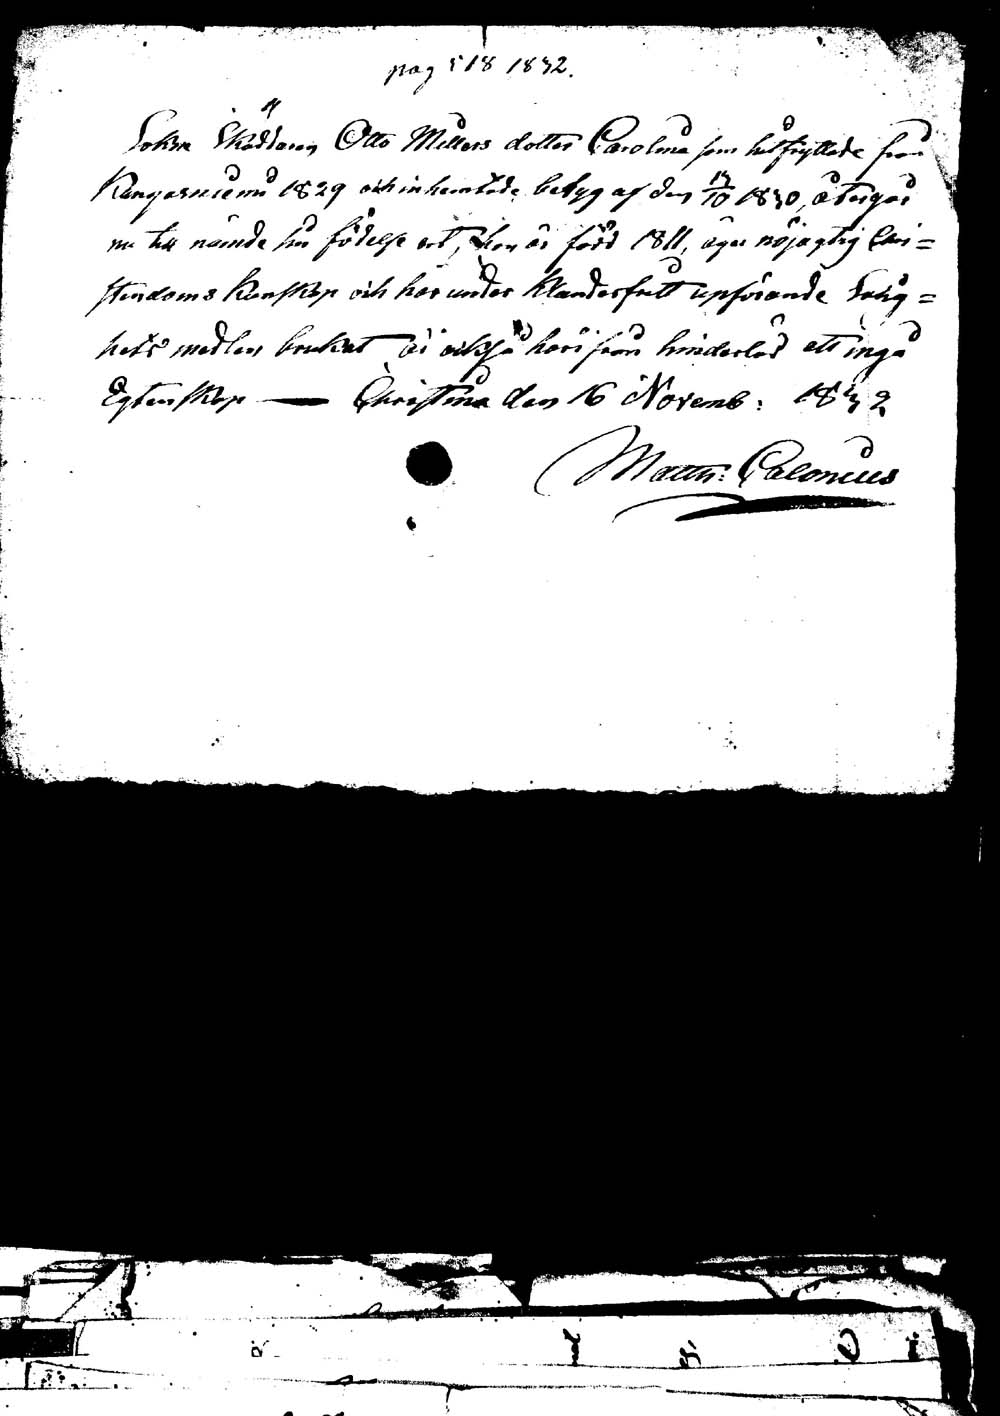 pag 518 1832.
Sokn Skräddaren Otto Millers dotter Carolina som hitflyttade från
Kangasniemi 1829 och inhemtade betyg af den 17/10 1830, återgår
nu till nämde sin födelse ort, hon är född 1811, äger nöjagtig Chri=
stendoms kunskap och har under klanderfritt upförande Salig=
hets medlen brukat är också härifrån hinderlös att ingå
Egtenskap — Christina den 16 Novemb: 1832
Matth: Calonius